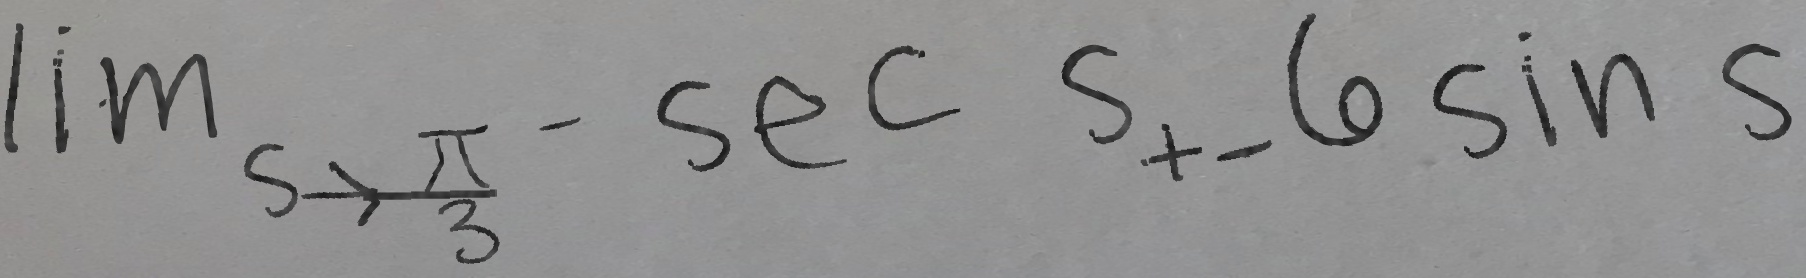 lim_{s→\frac{π}{3}^-} sec s + -6 sin s